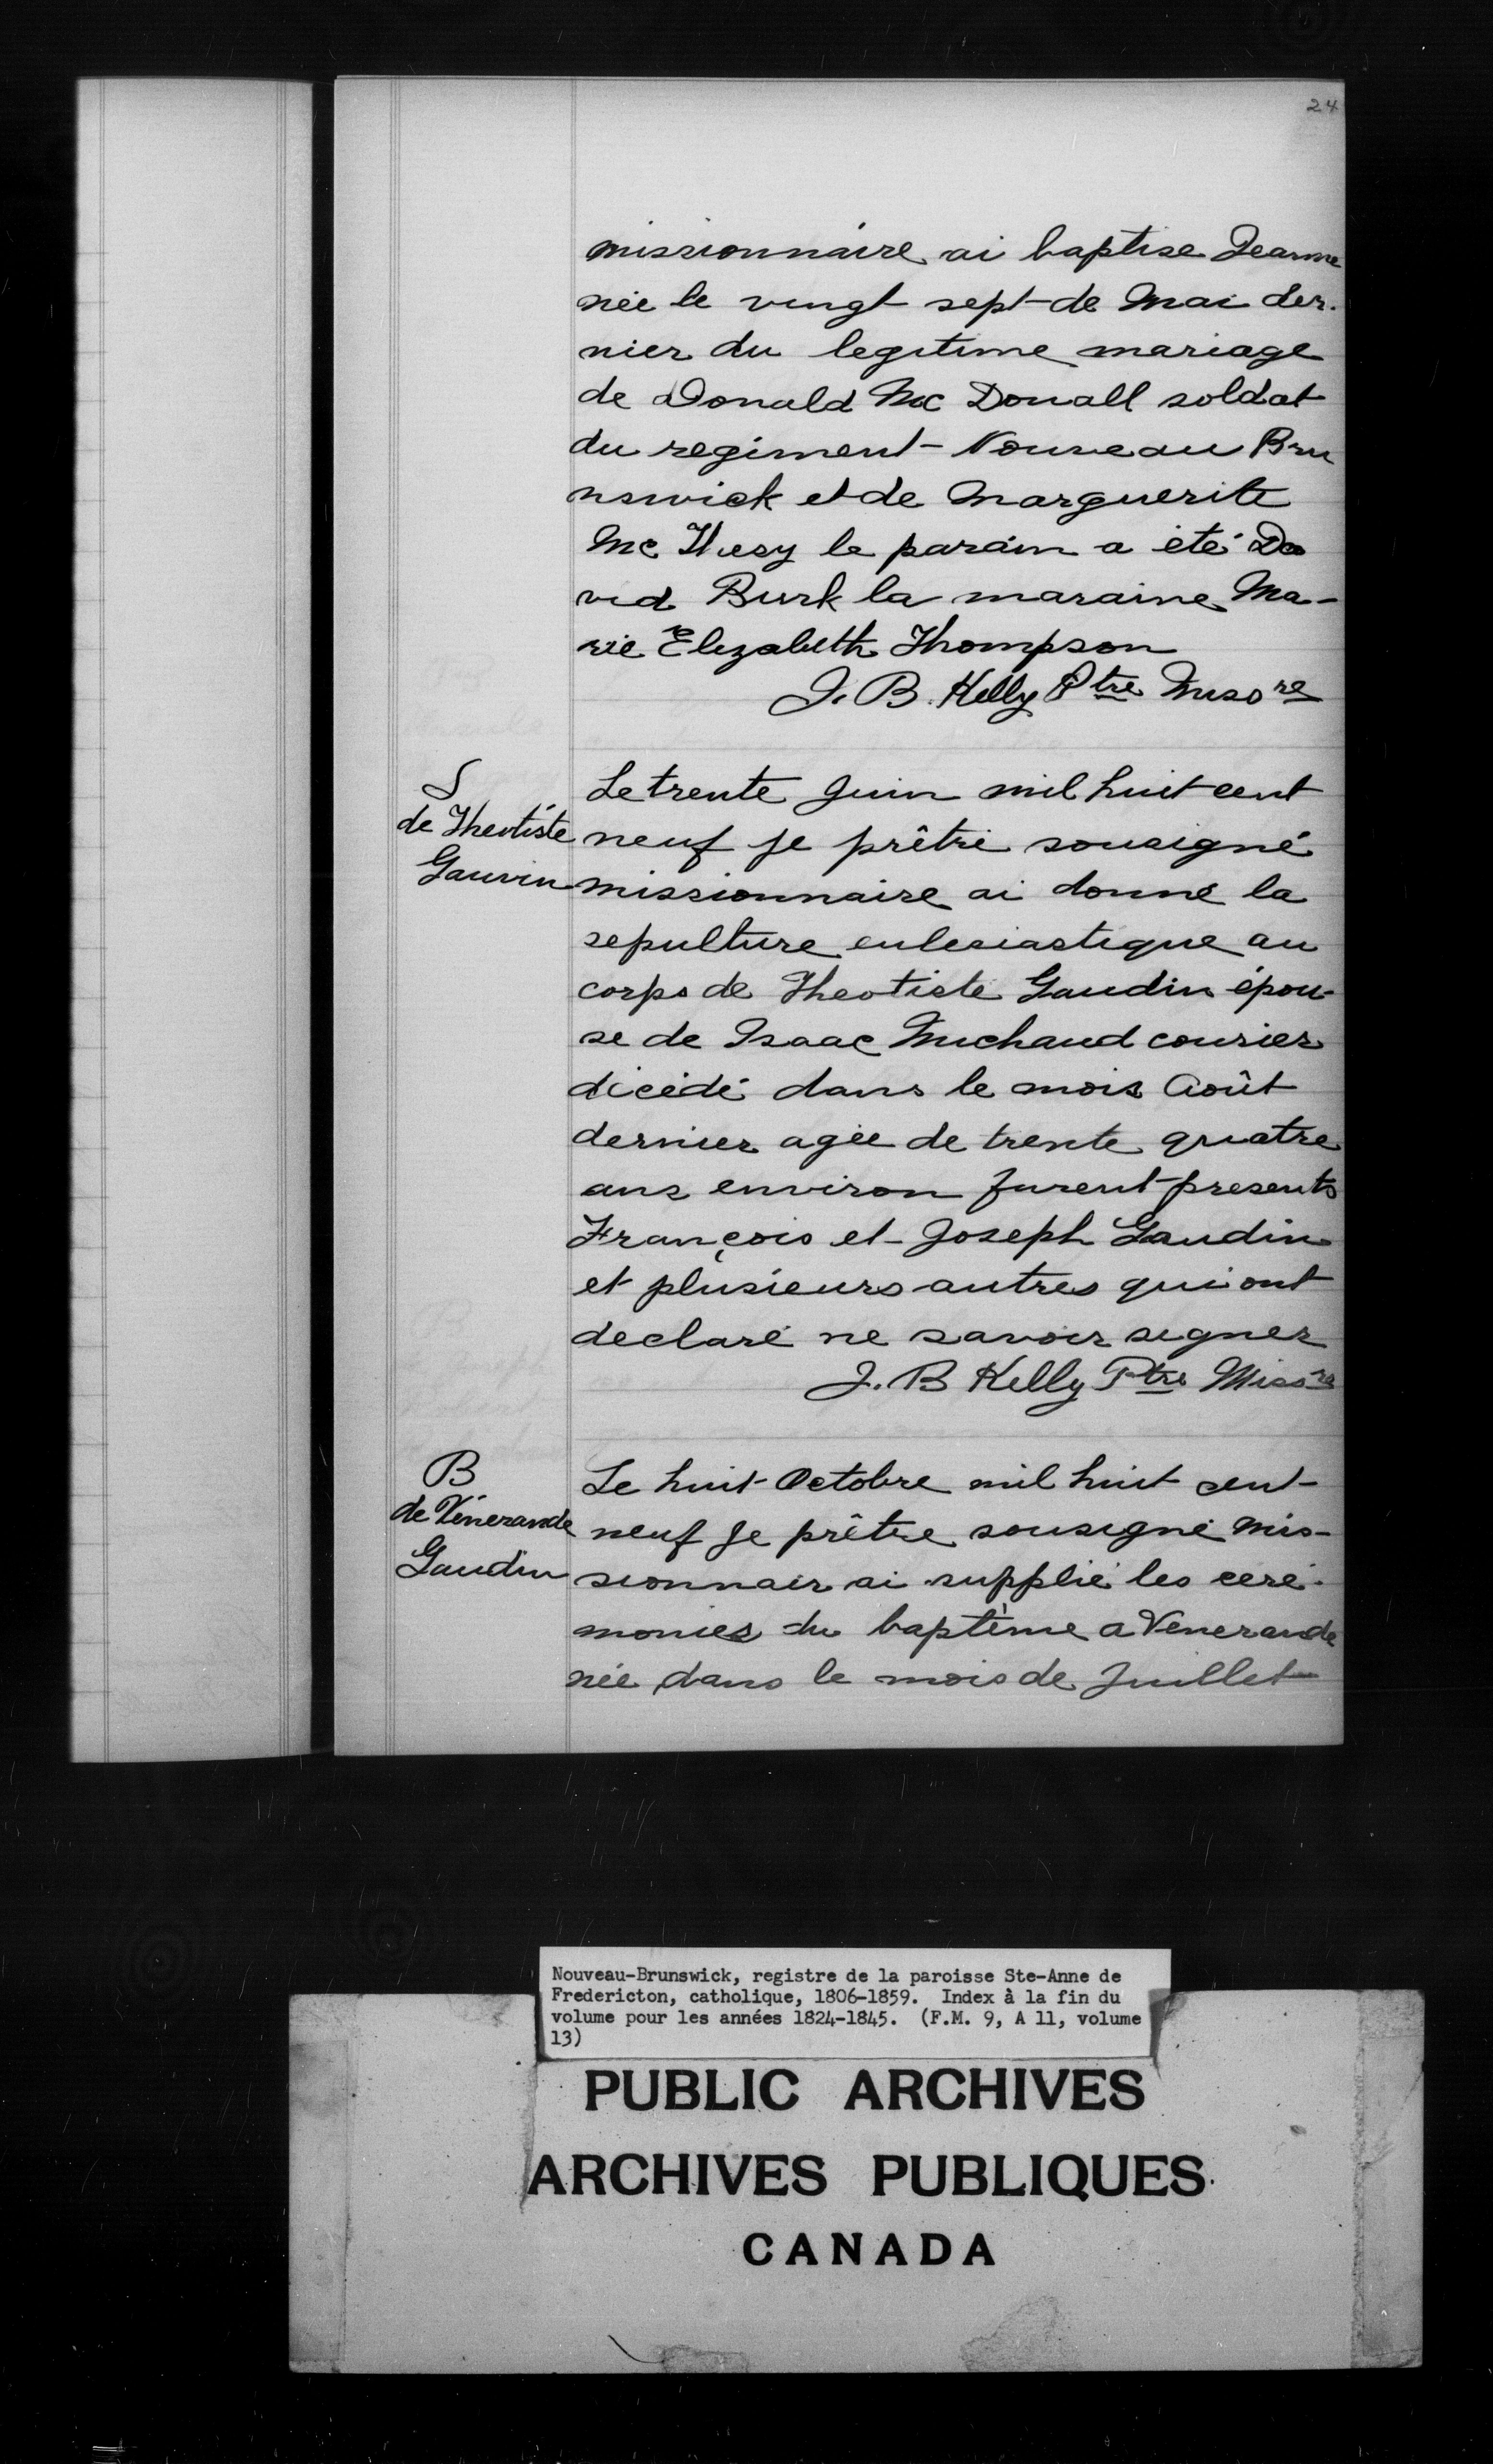 24
missionnaire ai baptise Jeanne
née le vingt sept de Mai der-
nier du legitime mariage
de Donald Mc Donall soldat
du regiment Nouveau Bru
nswick et de Marguerite
Mc le parain a été Da
vid Burk la maraine Ma-
rie Elizabeth Thompson
J. B. Kelly Ptre Misre
S
de Theotiste
Gauvin
Le trente Juin mil huit cent
neuf je prêtre sousigné
missionnaire ai donné la
sepulture eulesiastique au
corps de Theotiste Gaudin épou-
se de Isaac Michaud courier
décédé dans le mois Août
dernier agée de trente quatre
ans environ furent presents
François et Joseph Gaudin
et plusieurs autres qui ont
declaré ne savoir signer
J. B Kelly Ptre Missre
B
de Vénerande
Gaudin
Le huit Octobre mil huit cent
neuf je prêtre sousigné mis-
sionnair ai supplié les ceré-
monies du baptème a Venerande
née dans le mois de Juillet
Nouveau-Brunswick, registre de la paroisse Ste-Anne de
Fredericton, catholique, 1806-1859. Index à la fin du
volume pour les années 1824-1845. (F.M. 9, A 11, volume
13)
PUBLIC ARCHIVES
ARCHIVES PUBLIQUES
CANADA